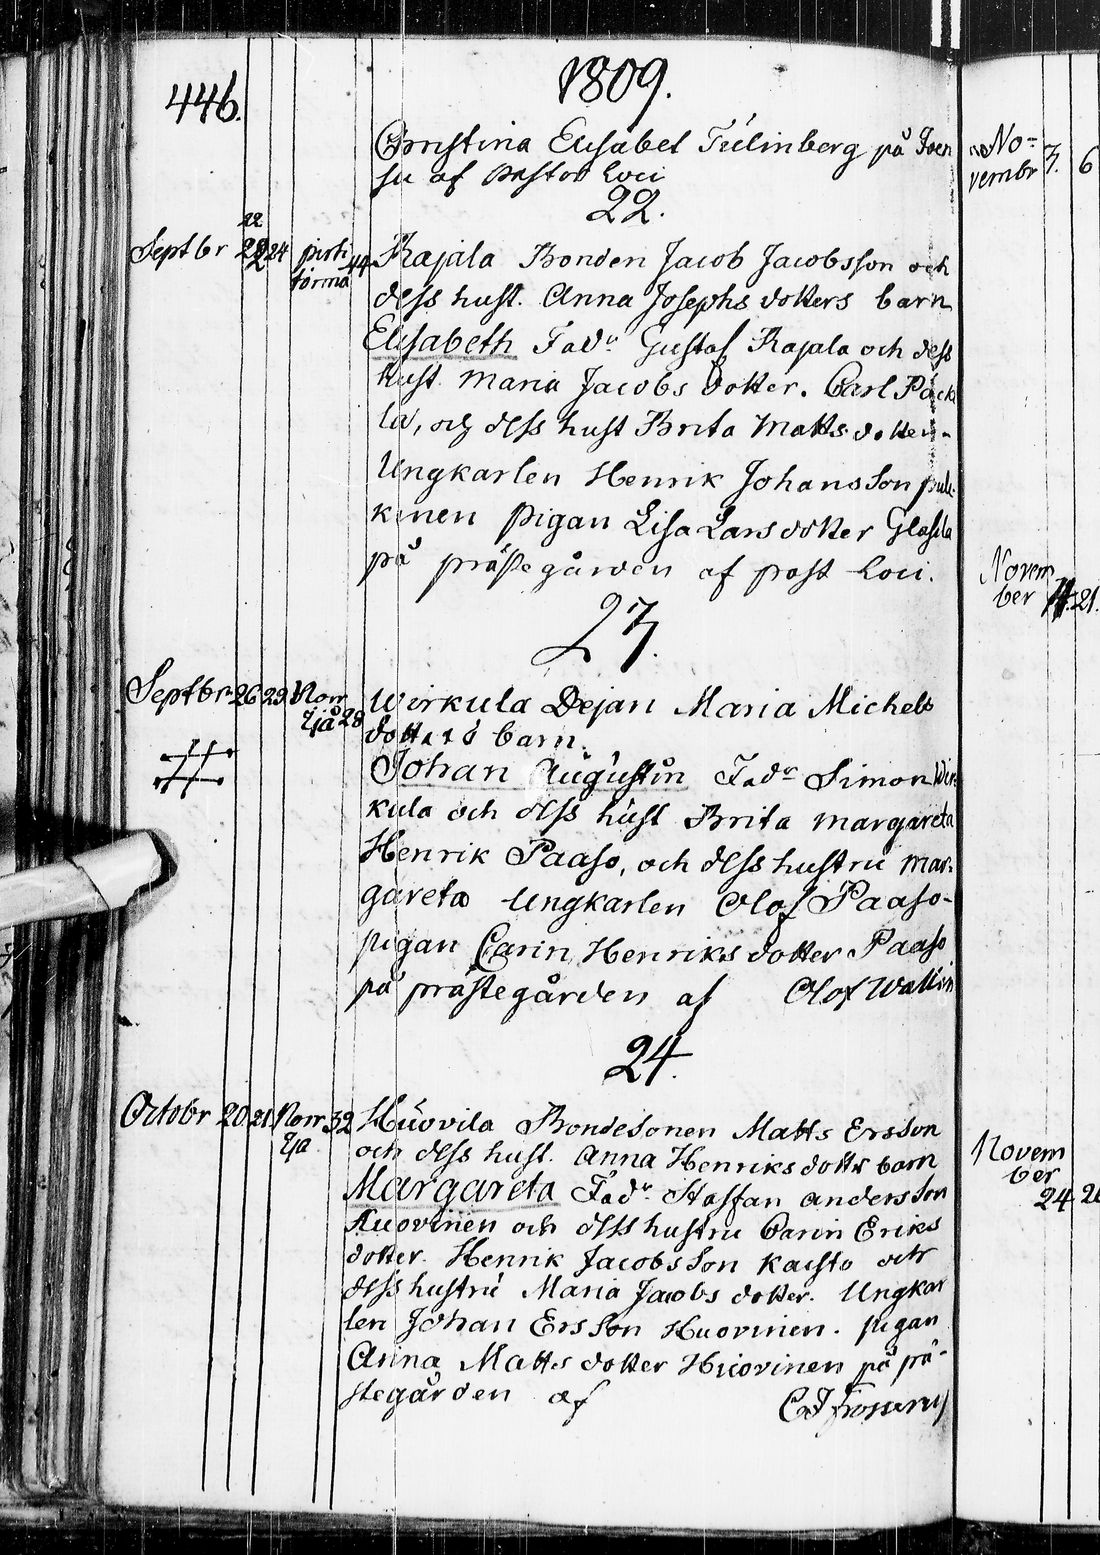 446.
1809.
Christina Elisabet Tulinberg på Joen
su af Pastor Loci
22.
22
Septbr 22 24 pirti 44 Rajala Bonden Jacob Jacobsson och
törmä dess hust. Anna Josephs dotters barn
Elisabeth Fadr Gustaf Rajala och dess
hust. Maria Jacobs dotter. Carl Päck
lä, och dess hust Brita Mattsdotter.
Ungkarlen Henrik Johansson pull
kinen pigan Lisa Larsdotter Glasila
på prästegården af past Loci.
23.
Septbr 26 29 Norr 28 Wirkula Dejan Maria Michels
sjä dotters ö barn.
Johan Augustin Fadr Simon Wir
kula och dess hust Brita Margareta
Henrik Paaso, och dess hustru Mar
gareta Ungkarlen Olof Paaso
pigan Carin Henriks dotter Paaso
på prästegården af Olof Wallin
24.
Octobr 20 21 Norr 32 Huovila Bondesonen Matts Ersson
sja och dess hust. Anna Henriks dottr barn
Margareta Fadr. Staffan andersson
Huovinen och dess hustru Carin Eriks
dotter. Henrik Jacobsson Kaisto och
dess hustru Maria Jacobs dotter. Ungkar
len Johan Ersson Huovinen. pigan
Anna Matts dotter Huovinen på prä-
stegården af C J Frosterus
No-
vembr 3. 6
Novem
ber 21.
Novem
ber
24 26